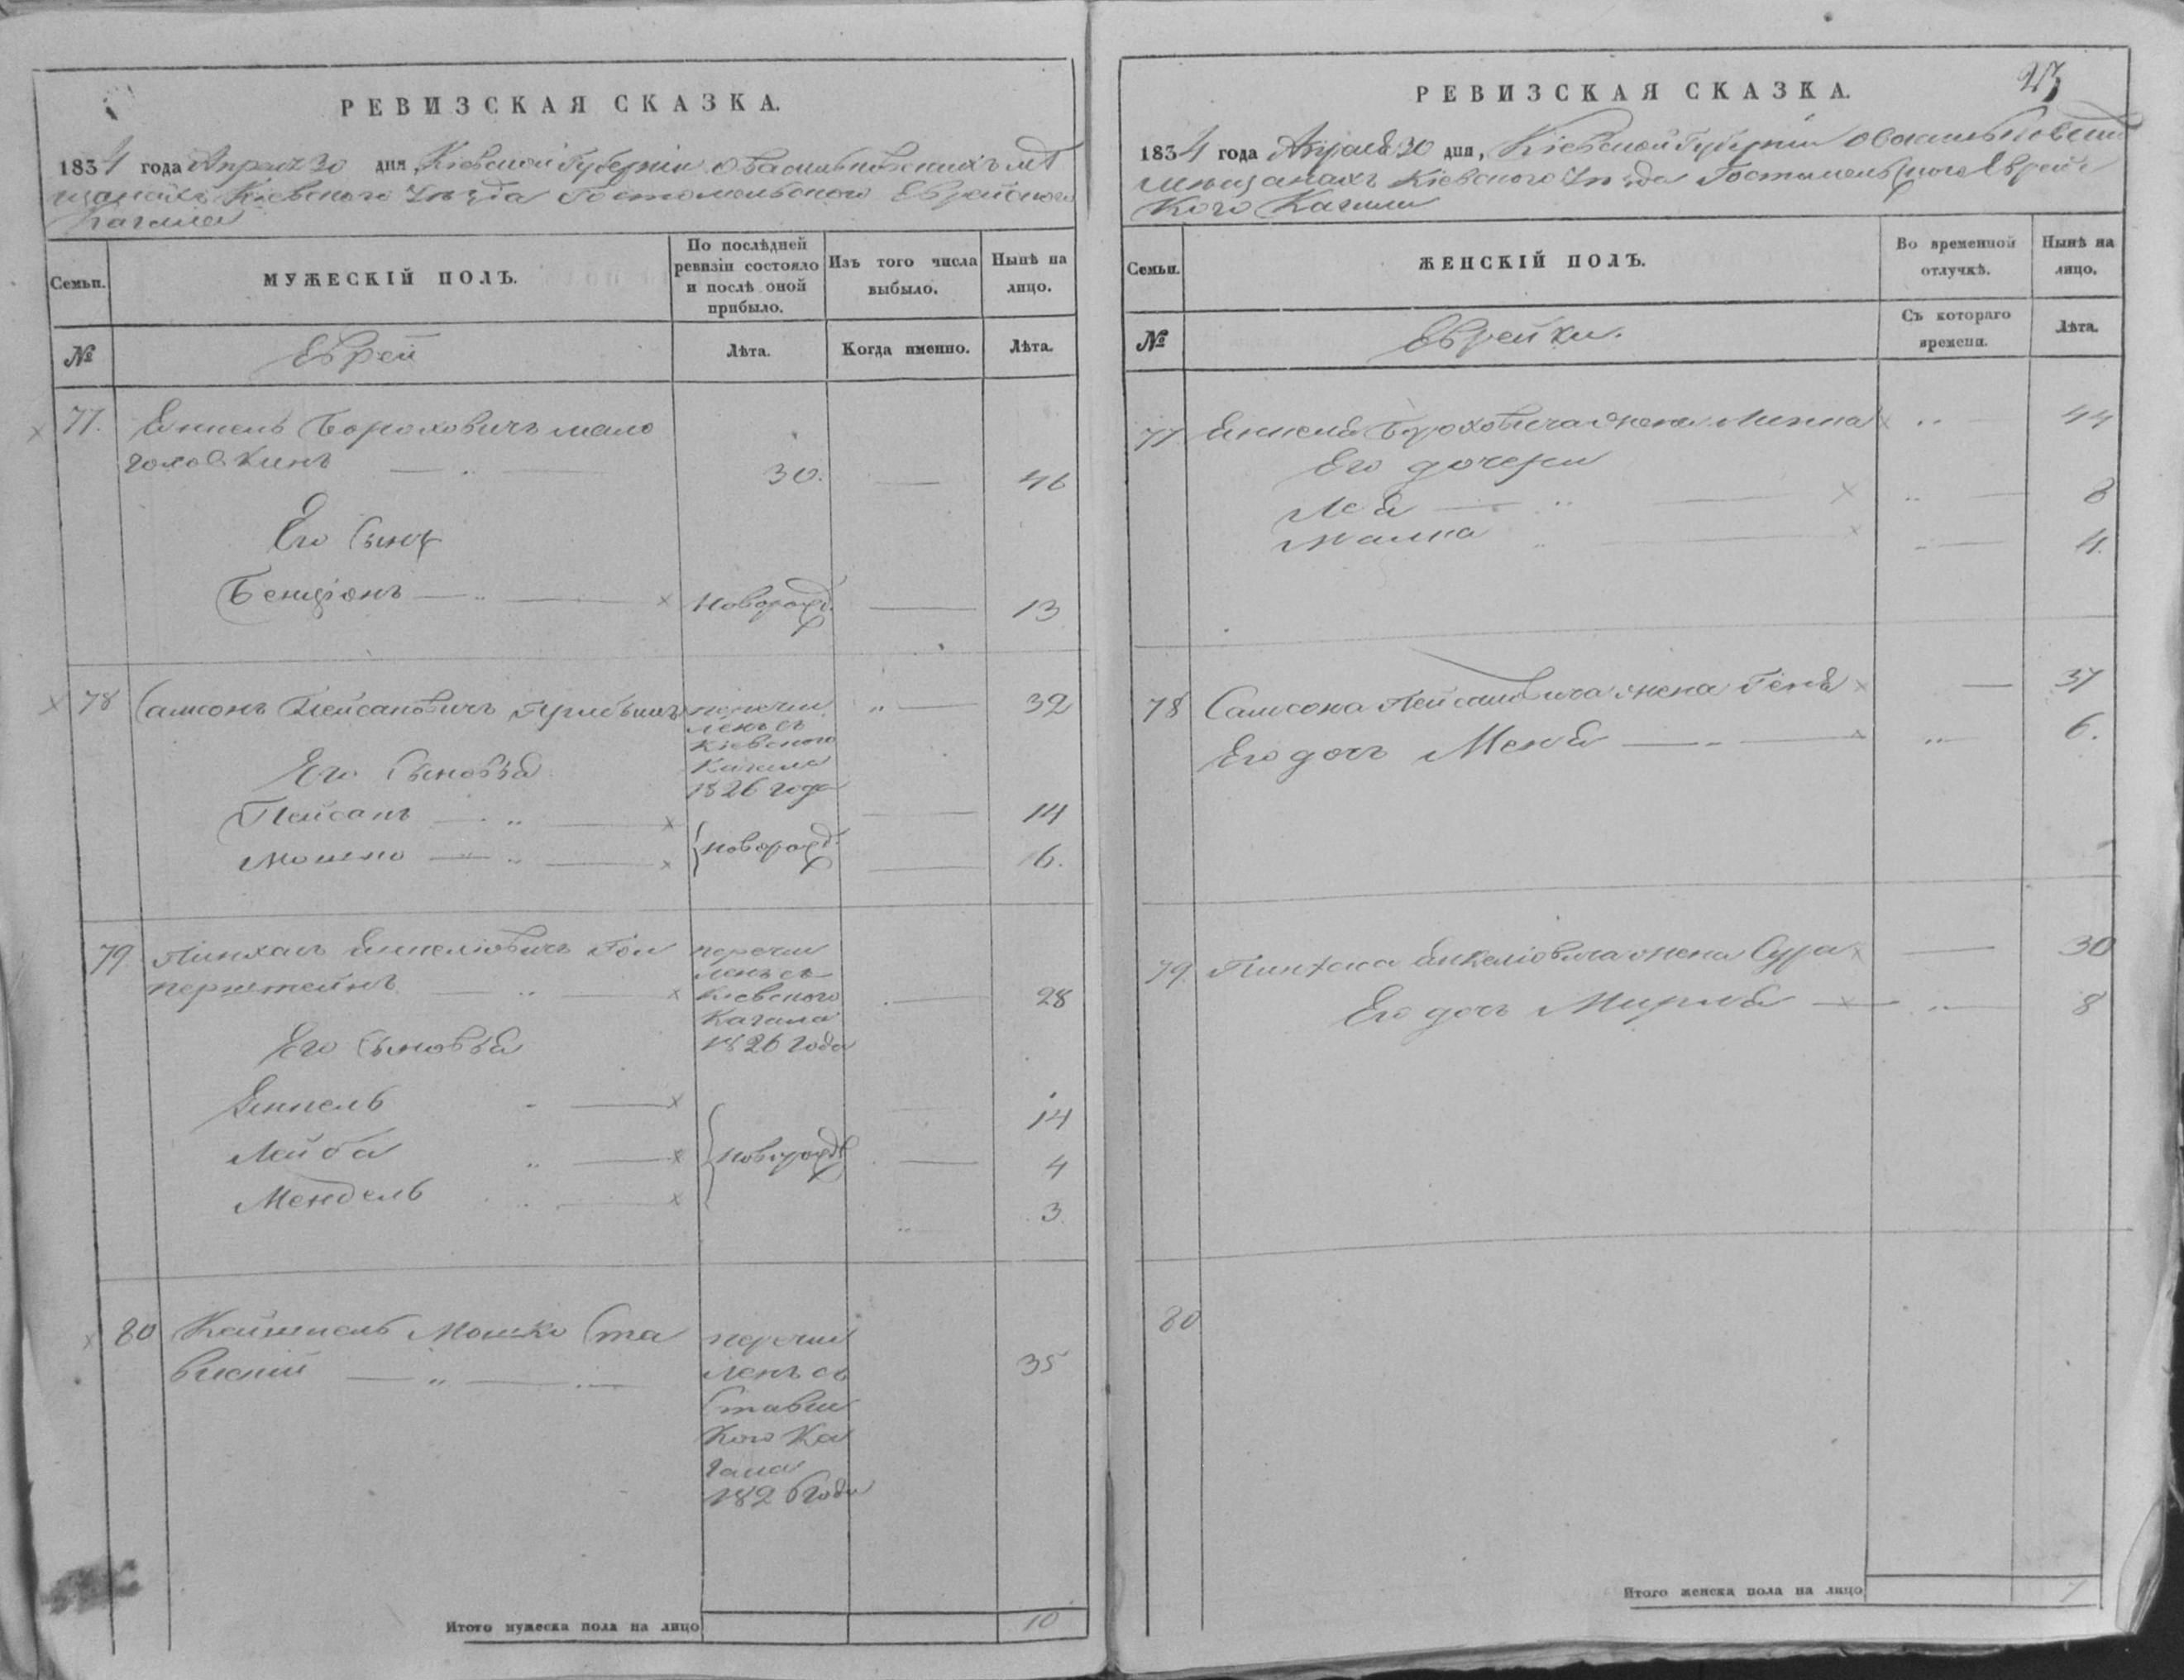 РЕВИЗСКАЯ СКАЗКА.
1834 года Апреля 30 дня, Кіевской Губерніи о васильковскихъ мѣ
щанахъ Кіевского Уѣзда Гостомельского Еврейского
Кагала
Семьи.
МУЖЕСКІЙ ПОЛЪ.
По послѣдней ревизіи состояло и послѣ оной прибыло.
Изъ того числа выбыло.
Нынѣ на лицо.
№
Еврей
Лѣта.
Когда именно.
Лѣта.
77. Янкель Борохович мало
головкинъ 30. 46
Его сынъ
Бенціонъ новорожд. 13
78 Самсонъ Пейсаховичъ перечис 32
ленъ съ
Кіевского
Его сыновья Кагала
1826 года
Пейсахъ 14
Мошко новорожд. 6.
79 Пинхасъ Янкеліовичъ Гол перечис
ленъ съ
перштейнъ Кіевского 28
Кагала
Его сыновья 1826 года
Янкель 14
Лейба новорожд 4
Мендель 3
80 Мошко Ста перечис
вискій ленъ съ 35
Ставис
кого Ка
гала
1826 года
Итого мужеска пола на лицо 10
РЕВИЗСКАЯ СКАЗКА.
1834 года Апреля 30 дня, Кіевской Губерніи о васильковски
мѣщанахъ Кіевского Уѣзда Гостомельского Еврейс
кого Кагала
Семьи.
ЖЕНСКІЙ ПОЛЪ.
Во временной отлучкѣ.
Нынѣ на лицо.
№
Еврейки.
Съ котораго времени.
Лѣта.
77 Янкеля Бороховича жена 44
Его дочери
Лея 8
Малка 4.
78 Самсона Пейсаховича жена Геня 37
Его дочь Меня 6.
79. Пинхаса Янкеліовича жена Сура 30
Его дочь Мирля 8
80
Итого женска пола на лицо 7